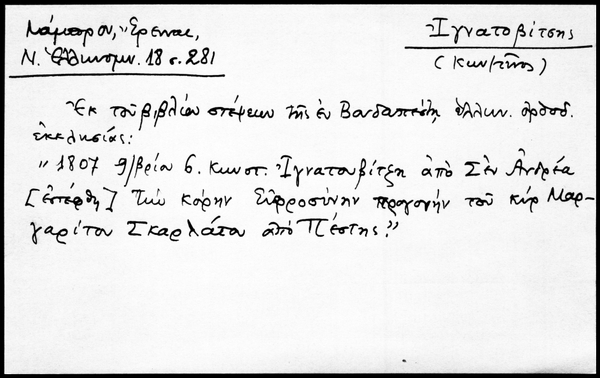 Λάμπρου, "Έρευναι,
Ν. Ἑλληνομν. 18 σ. 281
Ἰγνατοβίτσης
(Κων/τῖνος)
Ἐκ τοῦ βιβλίου στέψεων τῆς ἐν Βουδαπέστῃ ἑλλην. ὀρθοδ.
ἐκκλησίας:
"1807 9/βρίου 6. Κωνστ. Ἰγνατουβίτζη ἀπὸ Σὲν Ἀνδρέα
[ἐστέφθη] τὴν κόρην Εὐφροσύνην προγονὴν τοῦ κὺρ Μαρ-
γαρίτου Σκαρλάτου ἀπὸ Πέστης."